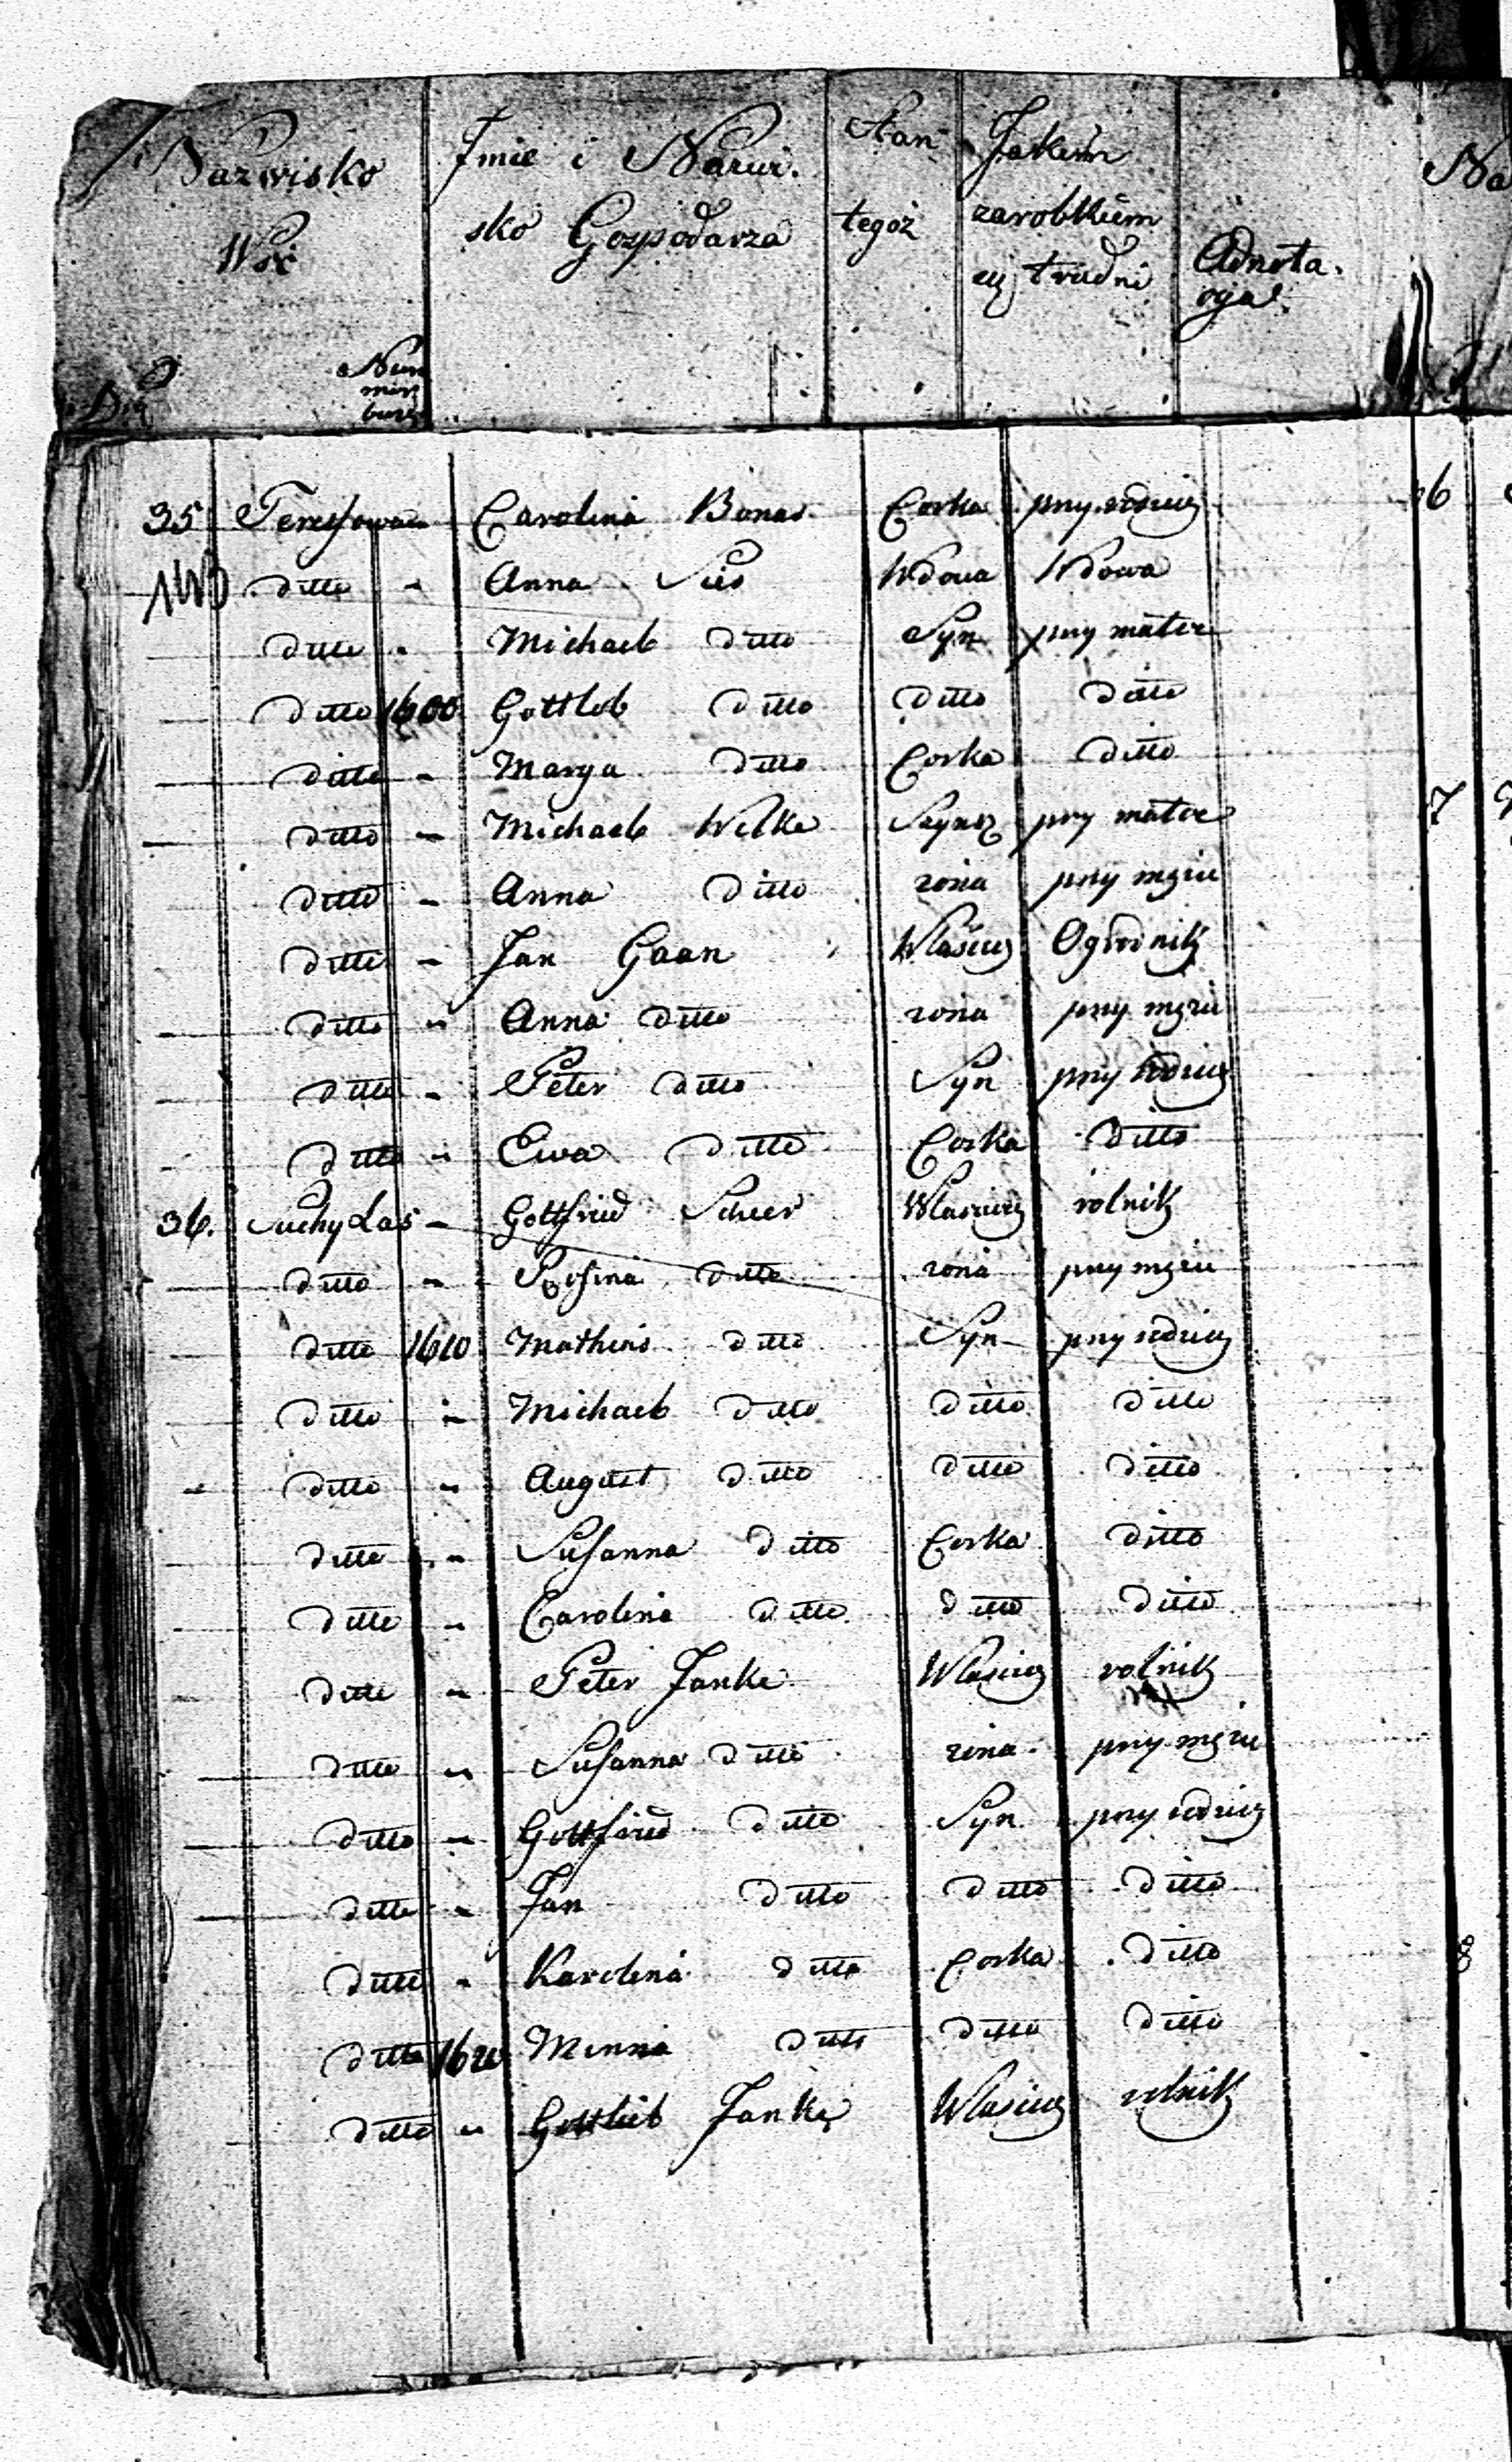 Nazwisko Wsi
Num
mer
Imie i Nazwi.
sko Gospodarza
Stan
tegoż
Jakim
zarobkiem
trudni
Adnota.
cya
Na
35 Carolina Bonas Corka przy rodzicz
ditto - Anna Wdowa Wdowa
ditto - Michael ditto Syn przy matce
ditto 1600 Gottlob ditto ditto ditto
ditto - Marya ditto Corka ditto
ditto - Michael Welke przy matce
ditto - Anna ditto zona przy mężu
ditto - Jan Gaan Własciciel Ogrodnik
ditto - Anna ditto zona przy mężu
ditto - Peter ditto Syn przy rodzicz
ditto - Ewa ditto Corka ditto
36. Suchy Las - Gottfried Scheer Własciciel rolnik
ditto - Rosina ditto zona przy mężu
ditto 1610 Matheus ditto Syn przy rodzicz
ditto - Michael ditto ditto ditto
ditto - August ditto ditto ditto
ditto - Susanna ditto Corka ditto
ditto - Carolina ditto ditto ditto
ditto - Peter Janke Własciciel rolnik
ditto - Susanna ditto zona przy mężu
ditto - Gottfried ditto Syn przy rodzicz
ditto - Jan ditto ditto ditto
ditto - Karolina ditto Corka ditto
ditto 1620 Minna ditto ditto ditto
ditto - Gottlieb Janke Własciciel rolnik
6
7
8